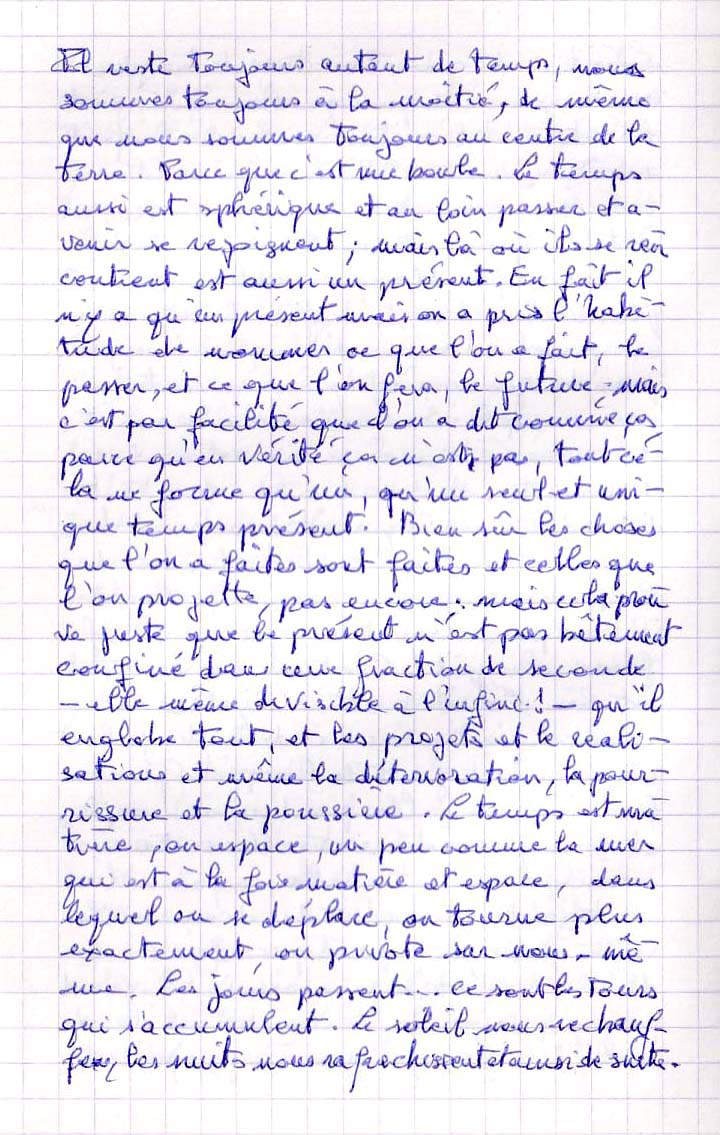 Il reste toujours autant de temps, nous
sommes toujours à la moitié, de même
que nous sommes toujours au centre de la
terre. Parce que c'est une boule. Le temps
aussi est sphérique et au loin passer et a-
venir se rejoignent ; mais là où ils se ren
contrent est aussi un présent. En fait il
n'y a qu'un présent mais on a pris l'habi-
tude de nommer ce que l'on a fait, le
passer, et ce que l'on fera, le future ; mais
c'est par facilité que l'on a dit comme ça
parce qu'en vérité ça n'est pas, tout ce-
la ne forme qu'un, qu'un seul et uni-
que temps présent. Bien sûr les choses
que l'on a faites sont faites et celles que
l'on projette, pas encore ; mais cela prou
ve juste que le présent n'est pas bêtement
confiné dans une fraction de seconde
– elle même divisible à l'infini ! – qu'il
englobe tout, et les projets et le réali-
sations et même la détérioration, la pour-
rissure et la poussière. Le temps est ma
tière, ou espace, un peu comme la mer
qui est à la fois matière et espace, dans
lequel on se déplace, on tourne plus
exactement, on pivote sur nous-mê
me. Les jours passent... ce sont les tours
qui s'accumulent. Le soleil nous rechauf-
fe, les nuits nous rafraichissent et ainsi de suite.